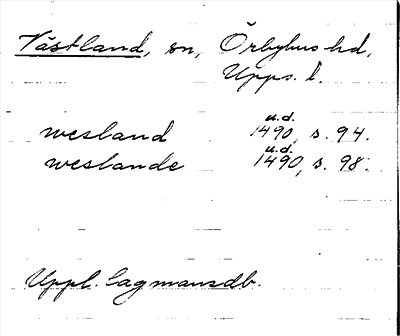 Västland, sn, Örbyhus hd,
Upps. l.
u.d.
wesland 1490, s. 94.
u.d.
weslande 1490, s. 98.
Uppl. lagmansdb.